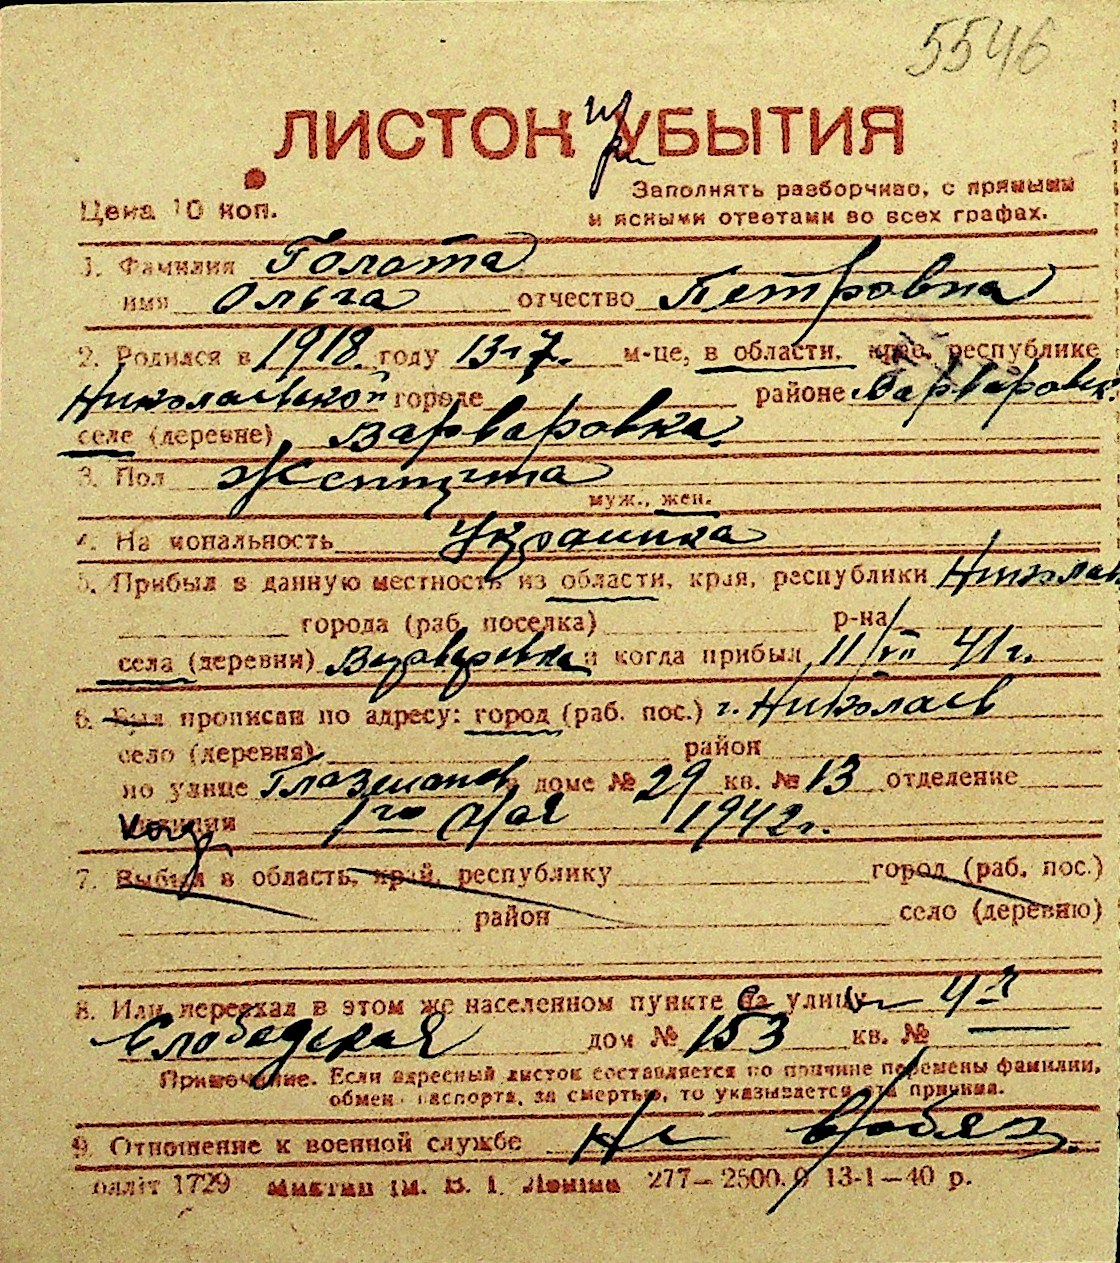 5546
ЛИСТОК при УБЫТИЯ
Цена 10 коп.
Заполнять разборчиво, с прямыми
и ясными ответами во всех графах.
1. Фамилия Голота
имя Ольга отчество Петровна
2. Родился в 1918 году 13-7. м-це, в области, крае, республике
Николаевской городе районе Варваровск.
селе (деревне) Варваровка
3. Пол Женщина
муж., жен.
4. На иональность Украинка
5. Прибыл в данную местность из области, края, республики Николаев
города (раб. поселка) р-на
села (деревни) Варваровка и когда прибыл 11/VII 41 г.
6. Был прописан по адресу: город (раб. пос.) г. Николаев
село (деревня) район
по улице в доме № 29 кв. № 13 отделение
1го Мая 1942 г.
7. Выбыл в область, край, республику город (раб. пос.)
район село (деревню)
8. Или переехал в этом же населенном пункте на улицу 4я
Слободская дом № 153 кв. № —
Примечание. Если адресный листок составляется по причине перемены фамилии,
обмен паспорта, за смертью, то указывается эта причина.
9. Отношение к военной службе не в/обяз.
блліт 1729 ім. В. І. Леніна 277—2500.0 13-1—40 р.